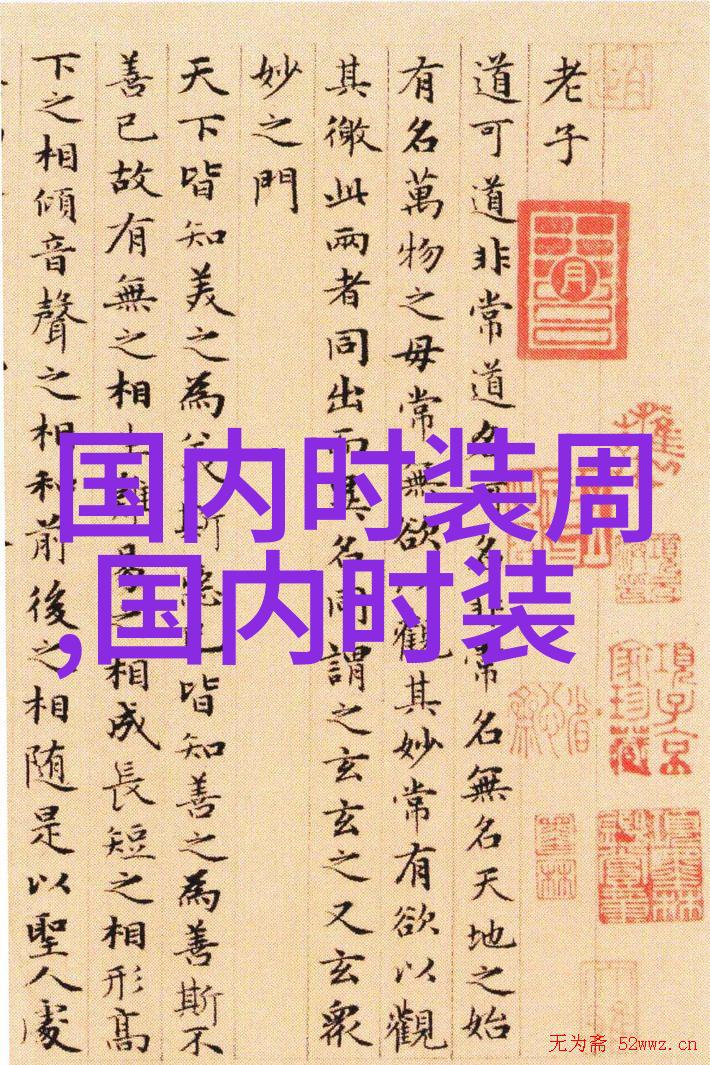 老子
道可道非常道名可名非常名無名天地之始
有名萬物之母常無欲以觀其妙常有欲以觀
其徼此兩者同出而異名同謂之玄玄之又玄衆
妙之門
天下皆知美之為美斯惡已皆知善之為善斯不
善已故有無之相生難易之相成長短之相形高
下之相傾音聲之相和前後之相随是以聖人處
国内时装周
,国内时装
項子京
家珍藏
无为斋 52wwz.cn